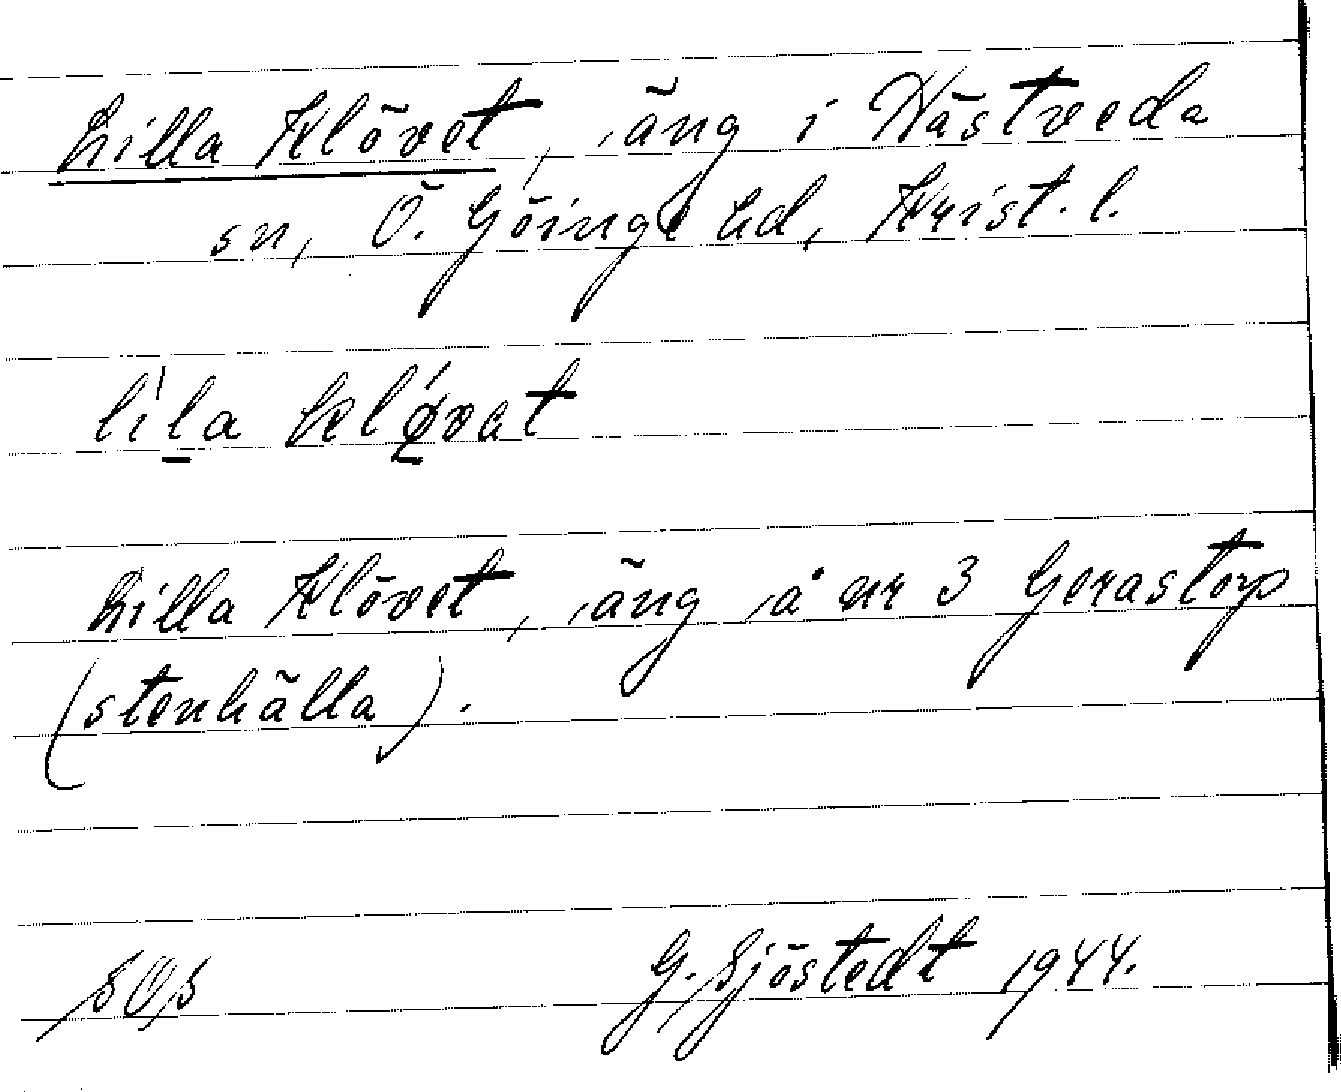 Lilla Klövet, äng i Hästveda
sn, Ö. Göinge hd, Krist. l.
lìla kló̱vat
Lilla Klövet, äng å nr 3 Gerastorp
(stenhälla).
SOS G. Sjöstedt 1944.